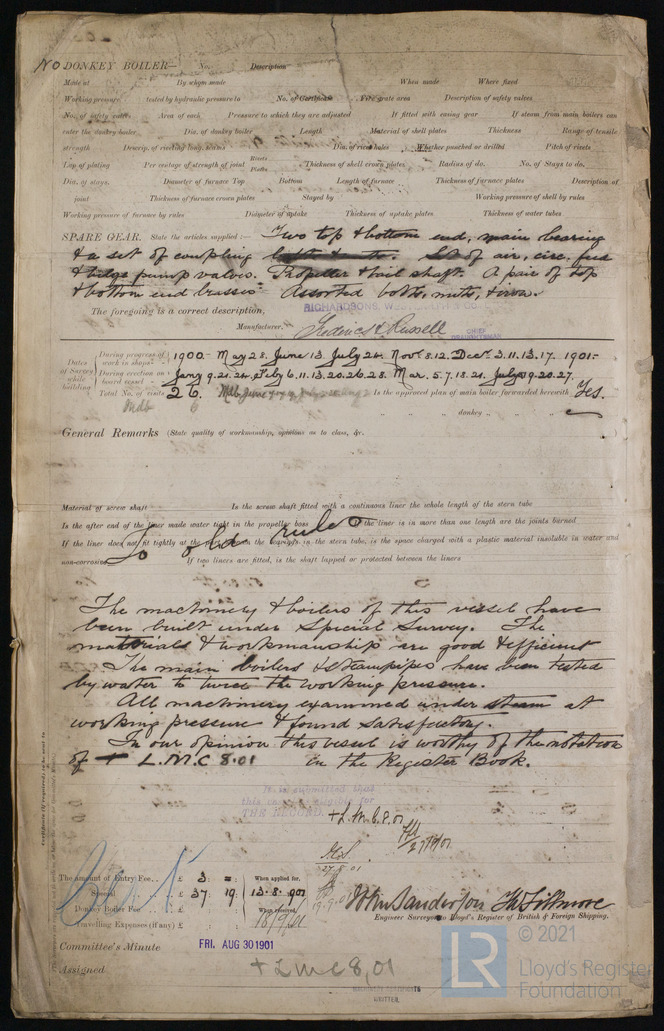 No DONKEY BOILER— No. Description
Made at By whom made When made Where fixed
Working pressure tested by hydraulic pressure to No. of Certificate Fire grate area Description of safety valves
No. of safety valves Area of each Pressure to which they are adjusted If fitted with easing gear If steam from main boilers can
enter the donkey boiler Dia. of donkey boiler Length Material of shell plates Thickness Range of tensile
strength Descrip. of riveting long. seams Dia. of rivet holes Whether punched or drilled Pitch of rivets
Lap of plating Per centage of strength of joint Rivets Plates Thickness of shell crown plates Radius of do. No. of Stays to do.
Dia. of stays. Diameter of furnace Top Bottom Length of furnace Thickness of furnace plates Description of
joint Thickness of furnace crown plates Stayed by Working pressure of shell by rules
Working pressure of furnace by rules Diameter of uptake Thickness of uptake plates Thickness of water tubes
SPARE GEAR. State the articles supplied:— Two top & bottom end, main bearing
& a set of coupling bolts & nuts. Set of air, circ. feed
& bilge pump valves. Propeller & tail shaft. A pair of top
& bottom end brasses. Assorted bolts, nuts, & iron.
The foregoing is a correct description,
RICHARDSONS, & CO.
Manufacturer. Frederick Russell CHIEF DRAUGHTSMAN
Dates of Survey while building
During progress of work in shops - - 1900:- May 28. June 13. July 24. Nov. 8.12. Dec. 3.11.13.17. 1901:-
During erection on board vessel - - Jany 9.21.24. Feby 6.11.13.20.26.28. Mar. 5.7.18.21. July 19.20.27.
Total No. of visits 26. Is the approved plan of main boiler forwarded herewith Yes.
Mdb 6 " " " donkey " " "
General Remarks (State quality of workmanship, opinions as to class, &c.
Material of screw shaft Is the screw shaft fitted with a continuous liner the whole length of the stern tube
Is the after end of the liner made water tight in the propeller boss If the liner is in more than one length are the joints burned
If the liner does not fit tightly at the part between the bearings in the stern tube, is the space charged with a plastic material insoluble in water and
To old rules
non-corrosive If two liners are fitted, is the shaft lapped or protected between the liners
The machinery & boilers of this vessel have
been built under Special Survey. The
materials & workmanship are good & efficient
The main boilers & steampipes have been tested
by water to twice the working pressure.
All machinery examined under steam at
working pressure & found satisfactory.
In our opinion this vessel is worthy of the notation
of + L.M.C 8.01 in the Register Book.
It is submitted that
this vessel is eligible for
THE RECORD. + L.M.C. 8.01
Certificate (if required) to be sent to
The Amount of Entry Fee . . £ 3 : = : When applied for,
Special £ 37 : 19 13.8.1901
Donkey Boiler Fee . . £ When received,
Travelling Expenses (if any) £ 18/9/01
John Sanderson
Engineer Surveyors to Lloyd's Register of British & Foreign Shipping.
Committee's Minute FRI. AUG 30 1901
Assigned + LMC 8,01
MACHINERY CERTIFICATE
WRITTEN.
LR
© 2021
Lloyd's Register
Foundation